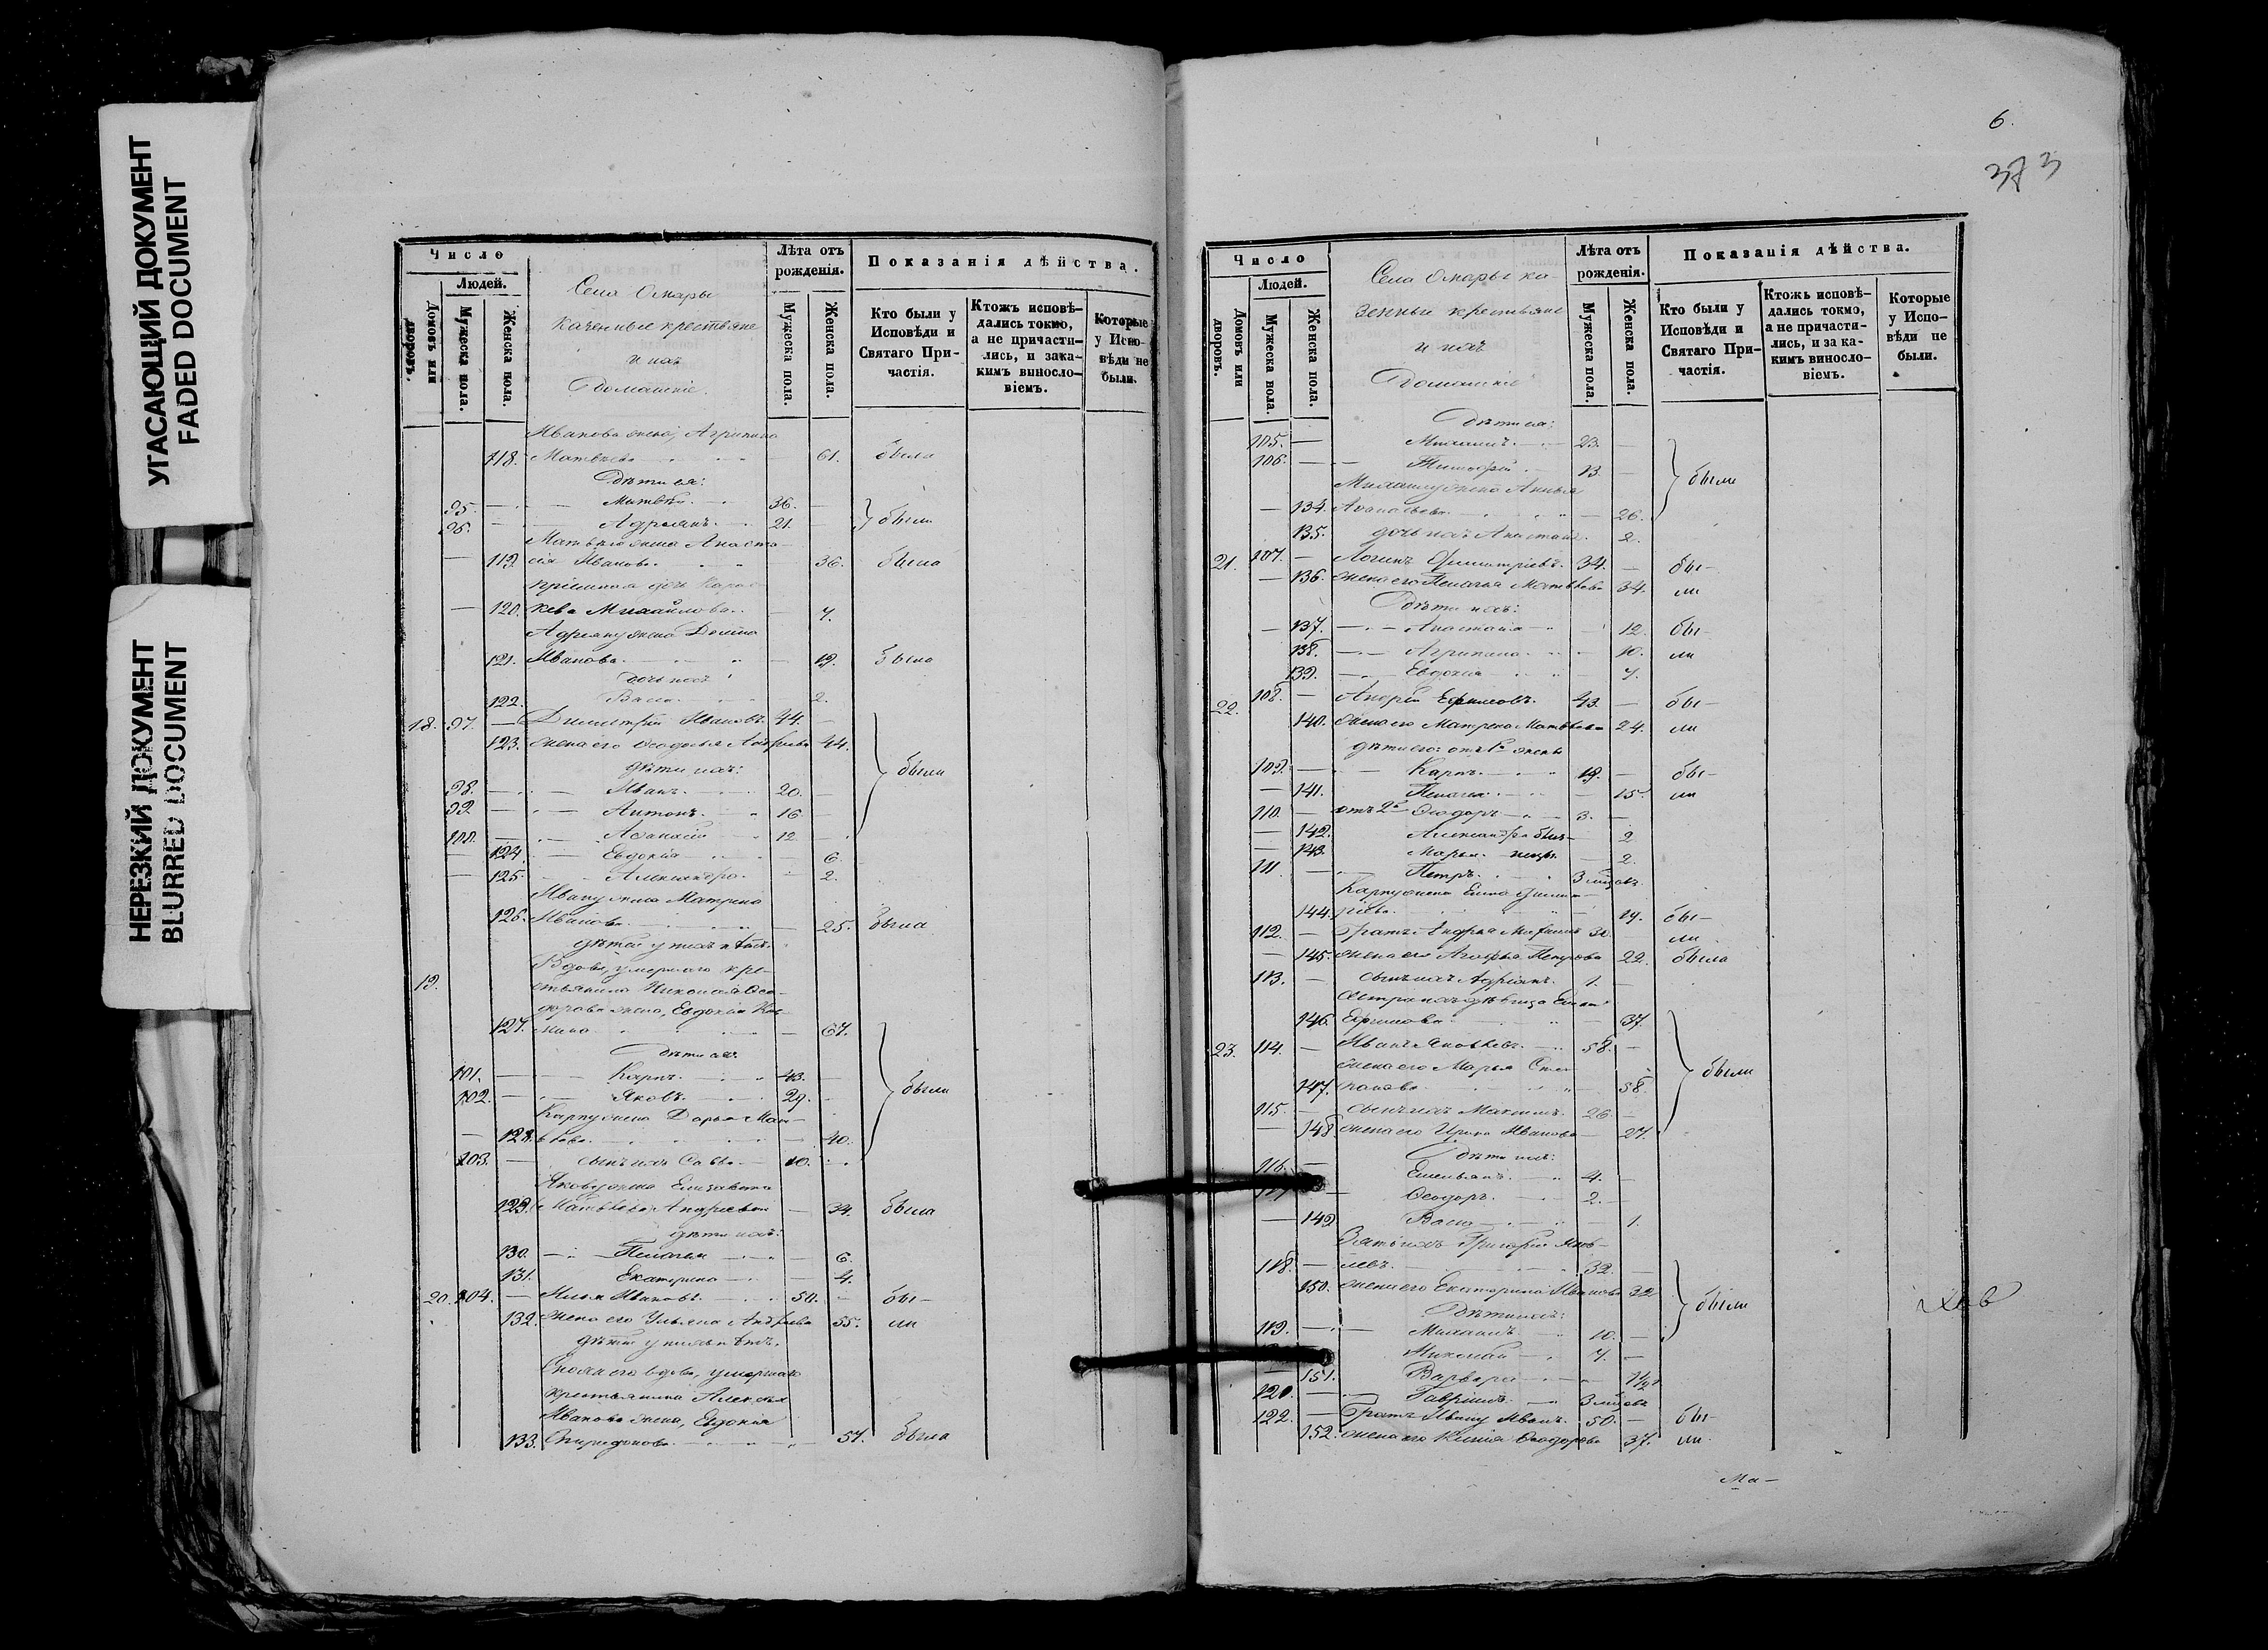 УГАСАЮЩИЙ ДОКУМЕНТ
FADED DOCUMENT
НЕРЕЗКИЙ ДОКУМЕНТ
BLURRED DOCUMENT
Число
Людей.
Домовъ или дворовъ.
Мужеска пола.
Женска пола.
Села Омары
казенные крестьяне
и ихъ
домашніе.
Лѣта отъ рожденія.
Мужеска пола.
Женска пола.
Показанія дѣйства.
Кто были у Исповѣди и Святаго Причастія.
Ктожъ исповѣдались токмо, а не причастились, и за какимъ винословіемъ.
Которые у Исповѣди не были.
Иванова жена, Агрипина
118. Матвѣева 61. была
Дѣти ея:
95. Матвѣй 36.
96. Адріянъ 21. были
Матвѣя жена Анаста-
119. сія Иванова 36. была
пріемная дочь Параске-
120. кева Михайлова 7.
Адріяну жена
121. Иванова 19. была
дочь ихъ
122. Васса 2.
18. 97. Димитрій Ивановъ 44.
123. жена его Ѳеодосья Андреева 44.
дѣти ихъ:
98. Иванъ 20. были
99. Антонъ 16
100. Аѳанасій 12
124. Евдокія 6.
125. Александра 2.
Ивану жена Матрена
126. Иванова 25. была
дѣтей у нихъ нѣтъ.
19. Вдова, умершаго кре-
стьянина Николая Ѳео-
дорова жена, Евдокія
127. 67.
Дѣти ея:
101. Карпъ 43.
102. Яковъ 29. были
Карпу жена Дарья Мат-
128. вѣева 40.
103. сынъ ихъ Савва 10.
Якову жена Елизавета
129. 34. была
дѣти ихъ:
130. Пелагея 6.
131. Екатерина 4.
20. 104. Илья Ивановъ 50. бы-
132. жена его Ульяна Андреева 55. ли
дѣтей у нихъ нѣтъ.
Сноха его вдова, умершаго
крестьянина Алексѣя
Иванова жена, Евдокія
133. Спиридонова 57. была
6.
373
Число
Людей.
Домовъ или дворовъ.
Мужеска пола.
Женска пола.
Села Омары ка-
зенные крестьяне
и ихъ
домашніе
Лѣта отъ рожденія.
Мужеска пола.
Женска пола.
Показанія дѣйства.
Кто были у Исповѣди и Святаго Причастія.
Ктожъ исповѣдались токмо, а не причастились, и за какимъ винословіемъ.
Которые у Исповѣди не были.
Дѣти ея:
105. Михаилъ 23.
106. Тимофей 13. были
Михаилу жена
134. 26.
135. дочь ихъ Анастасія 2.
21. 107. Логинъ Димитріевъ 34. бы-
136. жена его Пелагея Матвѣева 34. ли
Дѣти ихъ:
137. Анастасія 12. бы-
138. Агрипина 10. ли
139. Евдокія 7.
22. 108. Андрей Ефимовъ 43. бы-
140. жена его Матрена Матвѣева 24. ли
дѣти его: отъ 1й жены
109. Карпъ 19. бы-
141. Пелагея 15. ли
110. отъ 2й Ѳеодоръ 3.
142. Александра 2
143. Марья 2.
111. Петръ 3 мѣсяц.
Карпу жена Елена Дмит-
144. ріева 19. бы-
112. Братъ Андрея 30. ли
145. жена его Агафья Петрова 22. была
113. сынъ ихъ Адріянъ 1.
Сестра ихъ дѣвица
146. Ефимова 37.
23. 114. Иванъ Яковлевъ 58.
жена его Марья Сте-
147. панова 58. были
115. сынъ ихъ Максимъ 26
148. жена его Ирина Иванова 27.
Дѣти ихъ:
116. Емельянъ 4.
117 Ѳеодоръ 2.
149 Васса 1.
Зять ихъ Григорій Яков-
118. левъ 32.
150. жена его Екатерина Иванова 32
Дѣти ихъ: были
119. Михаилъ 10.
Николай 7.
151. Варвара 1 1/2
120. Гавріилъ 3 мѣсяц.
122. Братъ Ивану Иванъ 50. бы-
152. жена его Ксенія Ѳеодорова 37. ли
Ма-